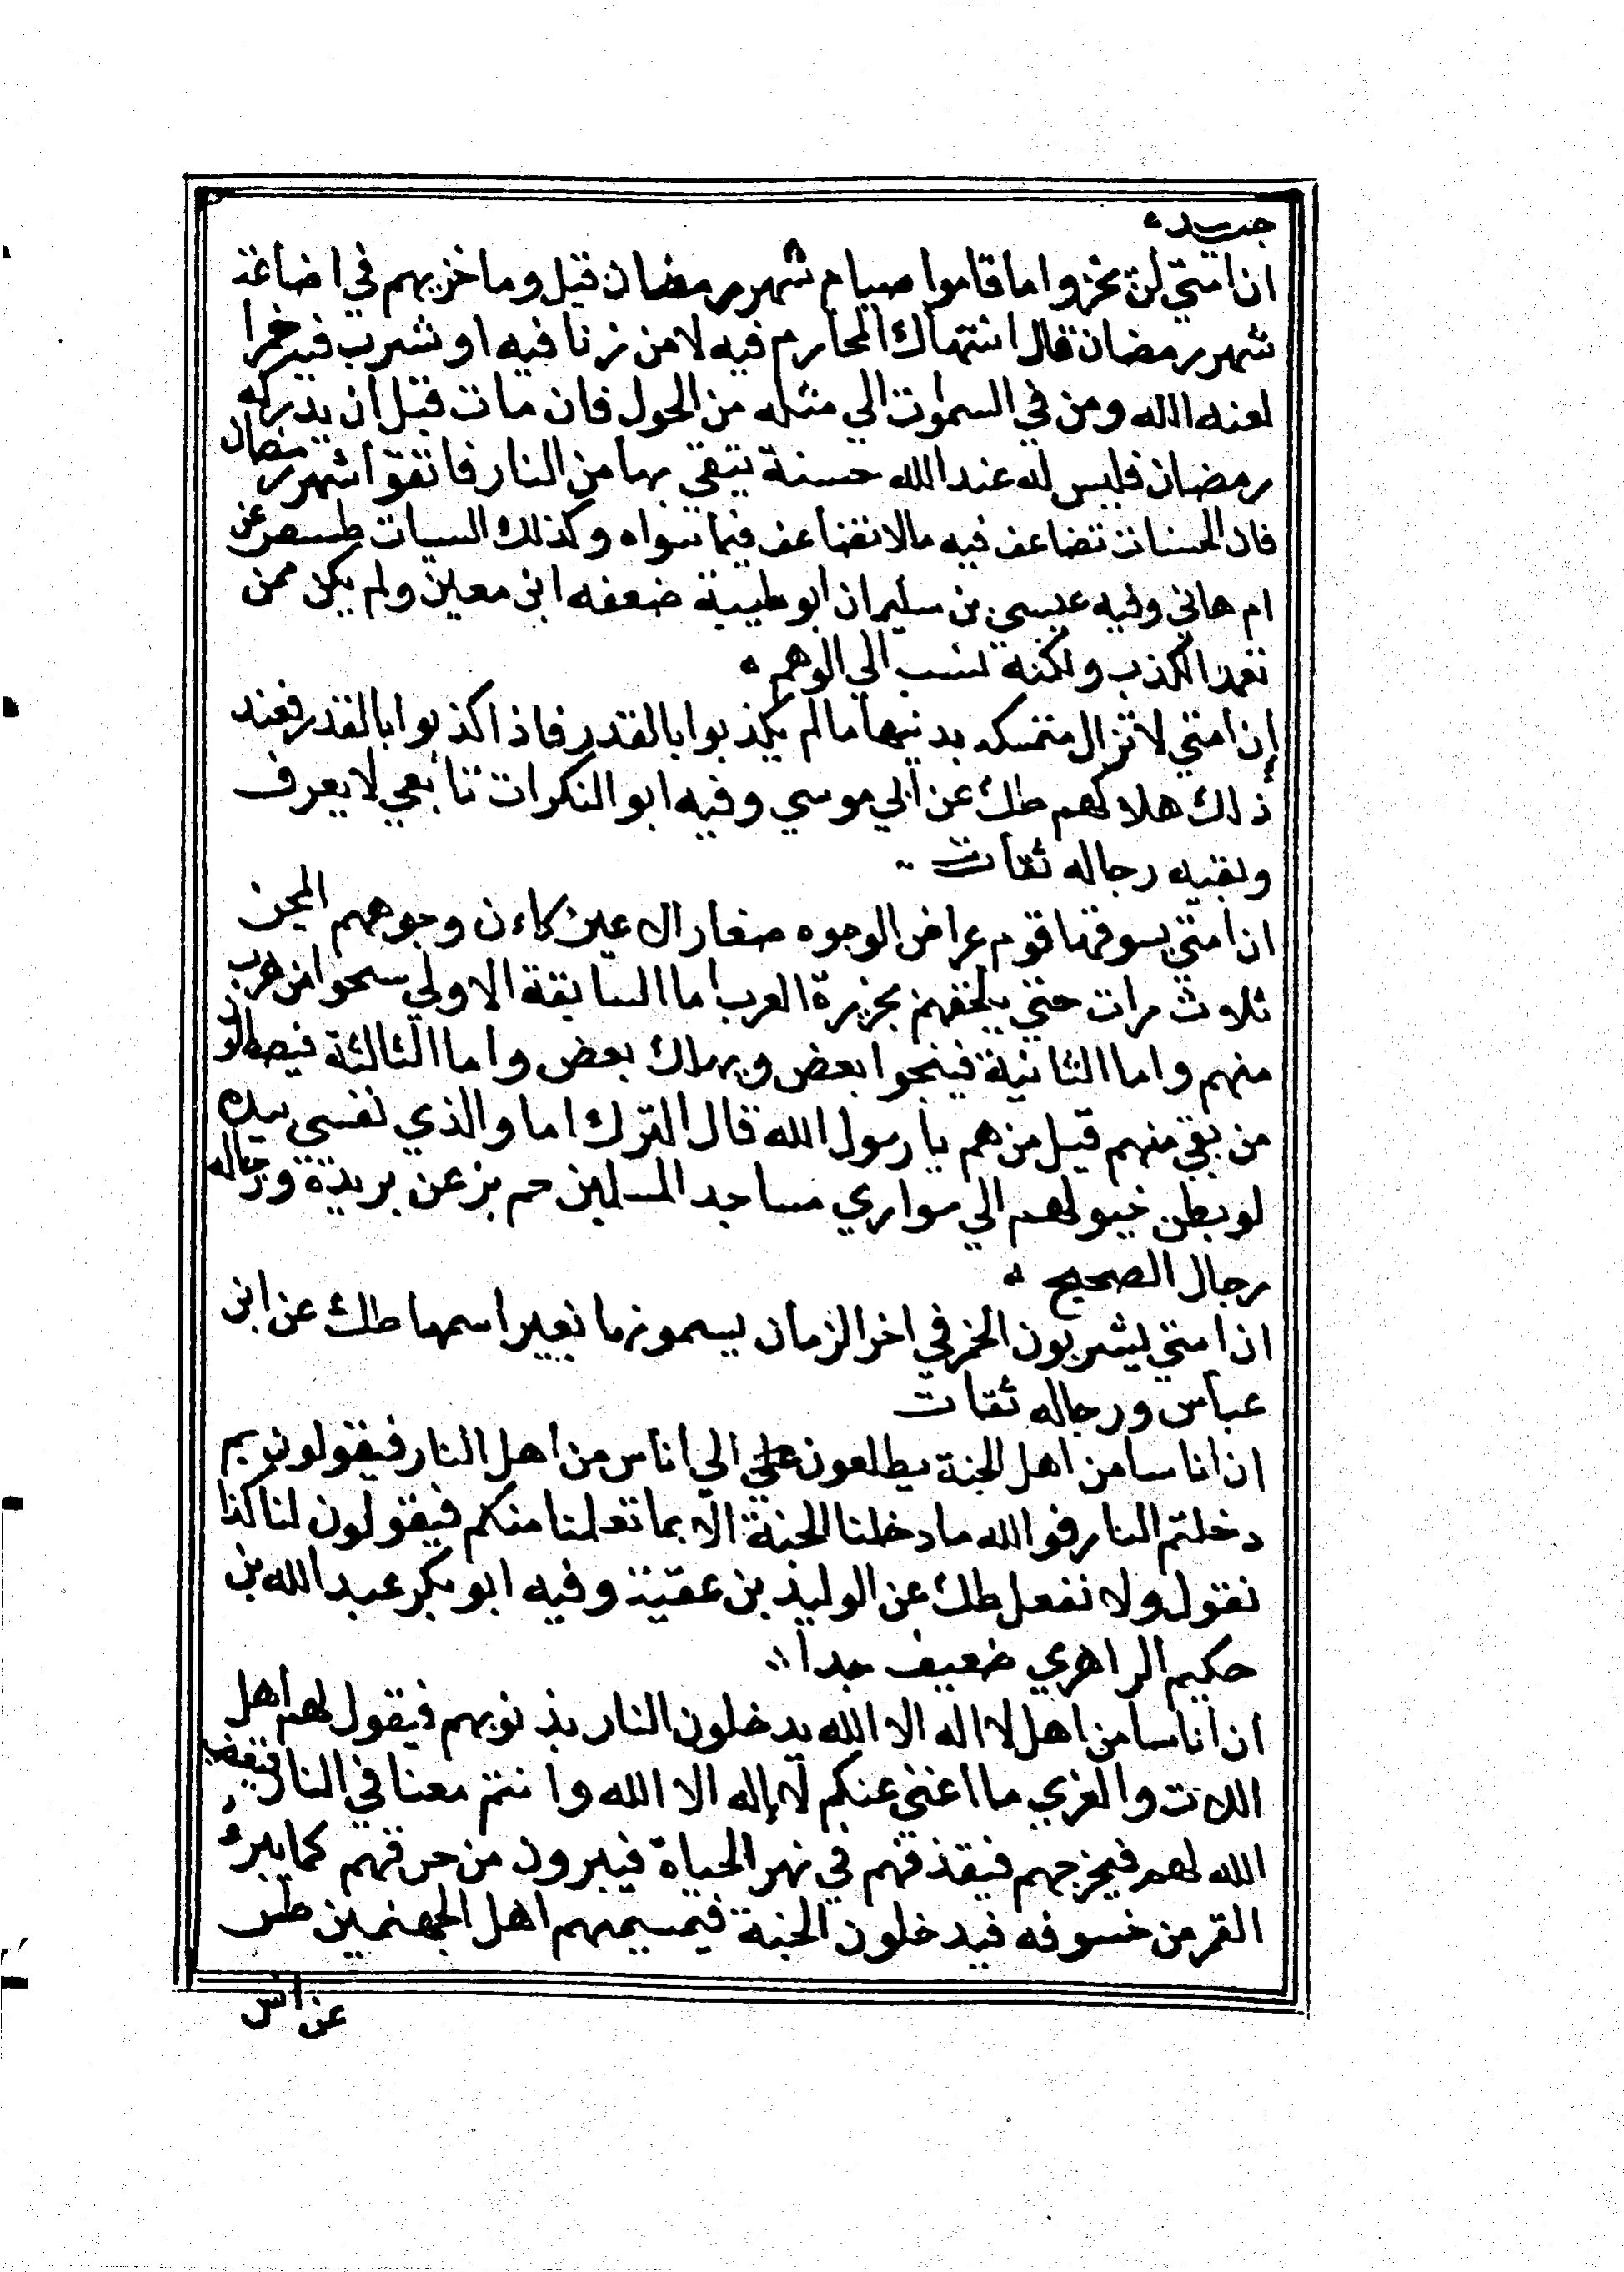 جيده
ان امتي لن يخزوا ما قاموا صيام شهر رمضان قيل وما خزيهم في اضاعة
شهر رمضان قال انتهاك المحارم فيه لا من زنا فيه او شرب فيه خمرا
لعنه الله ومن في السموات الي مثله من الحول فان مات قبل ان يدركه
رمضان فليس له عند الله حسنة يتقي بها من النار فاتقوا شهر رمضان
فان الحسنات تضاعف فيه ما لا تضاعف فيما سواه وكذلك السيات طسصر عن
ام هاني وفيه عيسي بن سليمان ابو طيبة ضعفه ابن معين ولم يكن ممن
تعمد الكذب ولكنه نسب الي الوهم ه
إن امتي لا تزال متمسكه بدينها ما لم يكذبوا بالقدر فاذا كذبوا بالقدر فعند
ذلك هلاكهم طك عن ابي موسي وفيه ابو النكرات تابعي لا يعرف
وبقيه رجاله ثقات
ان امتي يسوقها قوم عراض الوجوه صغار الاعين كاءن وجوههم المجن
ثلاث مرات حتي يلحقهم بجزيرة العرب اما السابقة الاولي سحوا من هرب
منهم واما الثانية فينجوا بعض ويهلك بعض واما الثالثة فيصطلون
من بقي منهم قيل من هم يا رسول الله قال الترك اما والذي نفسي بيده
لو بطن خيولهم الي سواري مساجد المسلمين حم بز عن بريدة ورجاله
رجال الصحيح ه
ان امتي يشربون الخمر في اخر الزمان يسمونها بغير اسمها طك عن ابن
عباس ورجاله ثقات
ان اناسا من اهل الجنة يطلعون الي اناس من اهل النار فيقولون بم
دخلتم النار فوالله ما دخلنا الجنة الا بما تعلمنا منكم فيقولون لنا كنا
نقول ولا نفعل طك عن الوليد بن عقبة وفيه ابو بكر عبد الله بن
حكيم الراهري ضعيف جدا
ان اناسا من اهل لا اله الا الله يدخلون النار بذنوبهم فيقول لهم اهل
اللات والعزي ما اغني عنكم لا إله الا الله وانتم معنا في النار فيغضب
الله لهم فيخرجهم فيقذفهم في نهر الحياة فيبرون من حرقهم كما يبرء
القمر من خسوفه فيدخلون الجنة فيمسيمهم اهل الجهنمين طس
عن انس